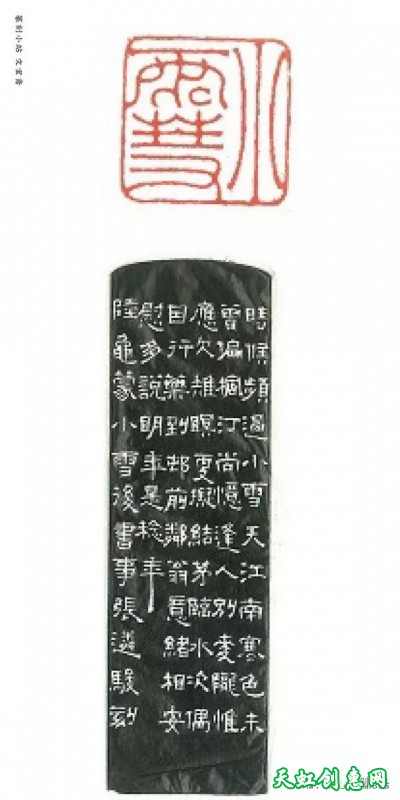 小雪
時候頻過小雪天江南寒色未
曾偏楓汀尚憶逢人別麥隴惟
應欠雉瞑更擬結茅臨水次偶
因行藥到邨前鄰翁意緒相安
慰多說明年是稔年
陸龜蒙小雪後書事張遴駿刻
篆刻小站 文宝斋
天虹创意网